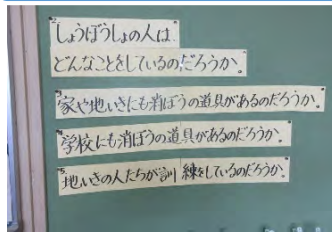 しょうぼうしょの人は
どんなことをしているのだろうか。
家や地いきにも消ぼうの道具があるのだろうか。
学校にも消ぼうの道具があるのだろうか。
地いきの人たちが訓練をしているのだろうか。